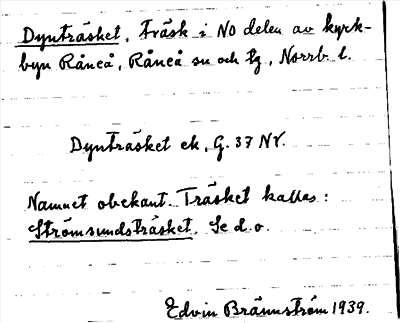 Dynträsket, träsk i NO delen av kyrk-
byn Råneå, Råneå sn och tg, Norrb. l.
Dynträsket ek, G. 37 NV.
Namnet obekant. Träsket kallas:
Strömsundsträsket. Se d. o.
Edvin Brännström 1939.